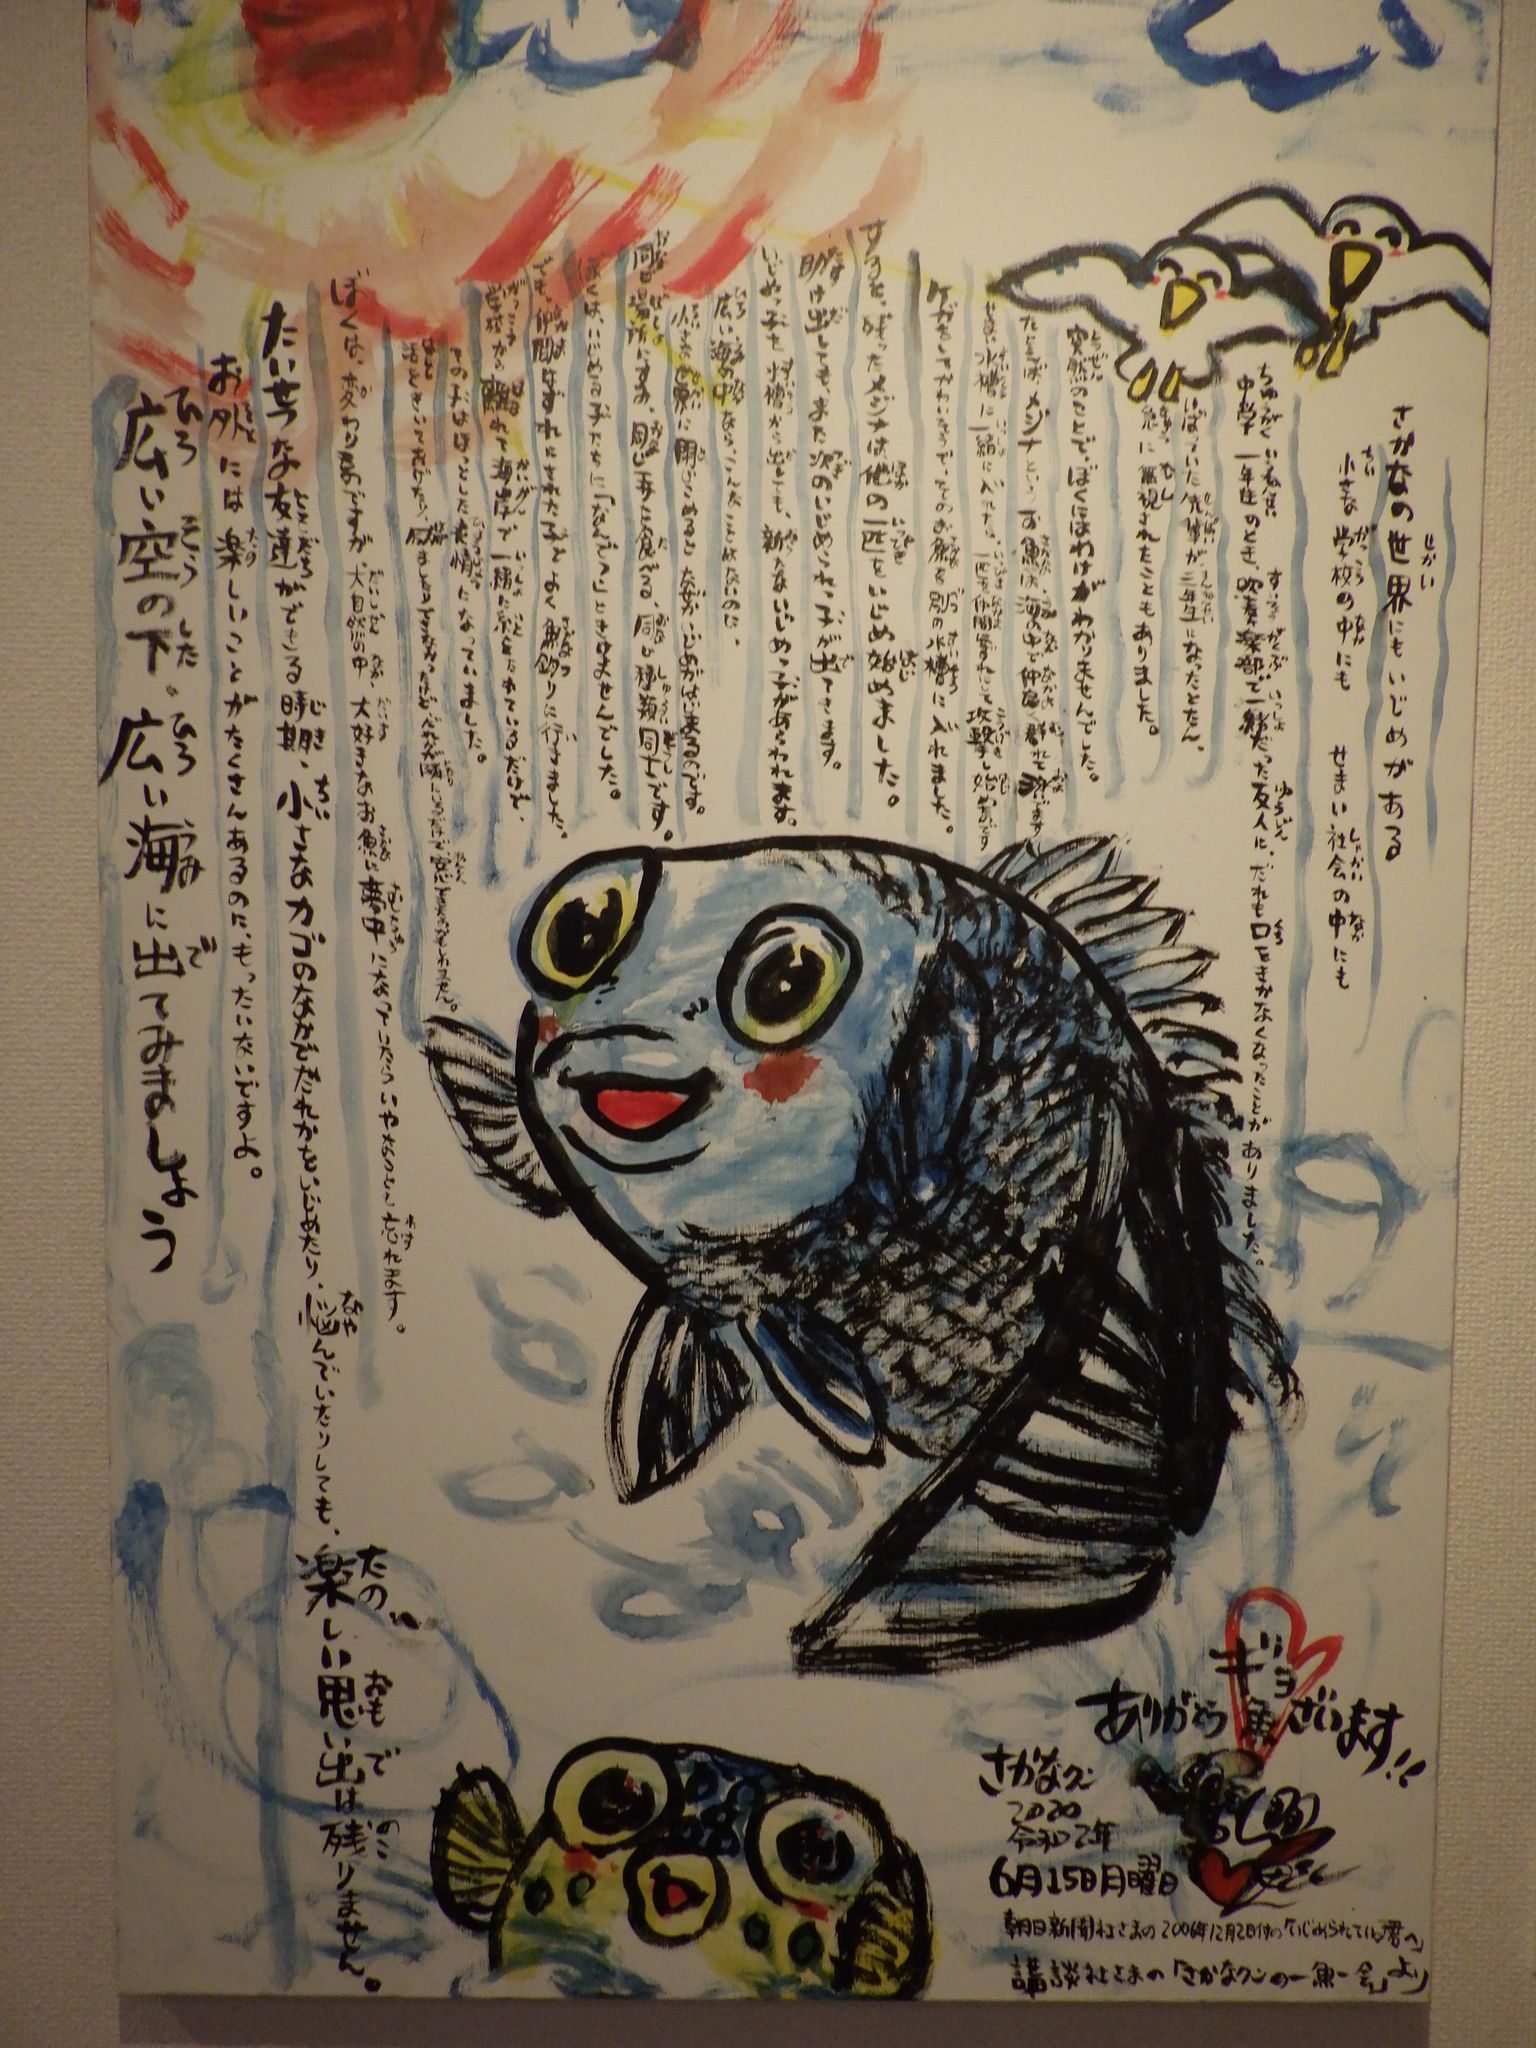 さかなの世界にもいじめがある
小さな学校の中にも せまい社会の中にも
中学一年生のとき、吹奏楽部で一緒だった友人に、だれも口をきかなくなったことがありました。
いばっていた先輩が三年生になったとたん、
急に無視されたこともありました。
突然のことで、ぼくにはわけがわかりませんでした。
たとえばメジナというお魚は、海の中で仲良く群れて
水槽に一緒に入れたら、一匹を仲間はずれにして攻撃し始めます
ケガをしてかわいそうで、そのお魚を別の水槽に入れました。
すると、残ったメジナは他の一匹をいじめ始めました。
助け出しても、また次のいじめられっ子が出てきます。
いじめっ子を水槽から出しても、新たないじめっ子があらわれます。
広い海の中ならこんなことはないのに、
小さな世界に閉じこめると、なぜかいじめが出来るのです。
同じ場所にすみ、同じエサを食べる、同じ種類同士です。
ぼくは、いじめる子たちに「なんで?」ときけませんでした。
でも、仲間はずれにされた子とよく魚釣りに行きました。
学校から離れて海岸で一緒に糸をたれているだけで、
その子はほっとした表情になっていました。
ぼくは、変わり者ですが、大自然の中、大好きなお魚に夢中になっていたらいやなことも忘れます。
たいせつな友達ができる時期、小さなカゴのなかでだれかをいじめたり、悩んでいたりしても、楽しい思い出は残りません。
お外には楽しいことがたくさんあるのに、もったいないですよ。
広い空の下、広い海に出てみましょう
ありがとうギョざいます!!
さかなクン
2020
令和2年
6月15日月曜日
朝日新聞社さまの2006年12月2日付の「いじめられている君へ」
講談社さまの「さかなクンの一魚一会」より